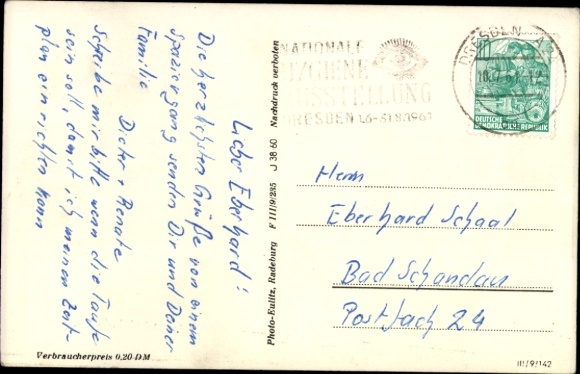 Lieber Eberhard!
Die herzlichsten Grüße von einem
Spaziergang senden Dir und Deiner
Familie
Dieter + Renate
Schreibe mir bitte wenn die Taufe
sein soll, damit ich meinen Zeit-
plan einrichten kann
Verbraucherpreis 0,20 DM
Photo-Eulitz, Radeburg F III/9/285 J 38 60 Nachdruck verboten
NATIONALE
HYGIENE
AUSSTELLUNG
DRESDEN 1.6-31.8.1961
DRESDEN A
10
DEUTSCHE
DEMOKRATISCHE REPUBLIK
Herrn
Eberhard Schaal
Bad Schandau
Postfach 24
III/9/142